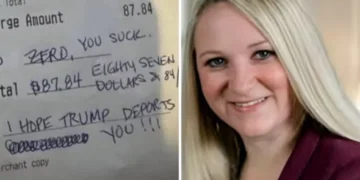 Total
rge Amount 87.84
ZERO, YOU SUCK.
tal $87.84 EIGHTY SEVEN
DOLLARS & 84/
I HOPE TRUMP DEPORTS
YOU!!!
rchant copy